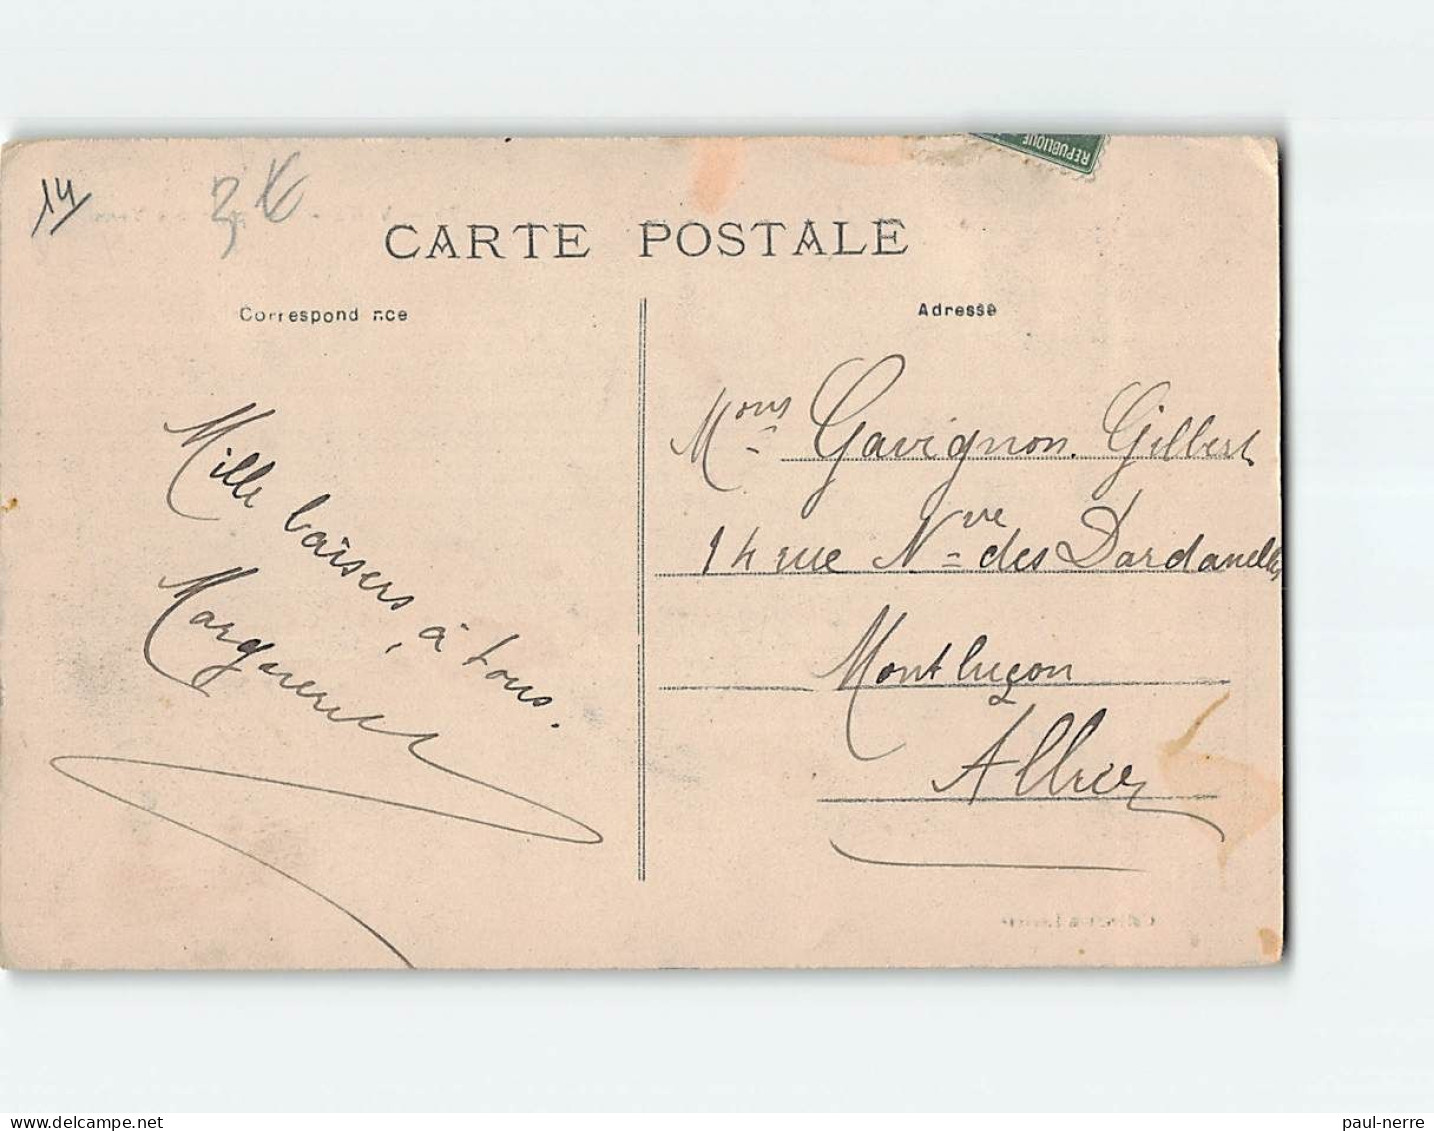 14
3€
REPUBLIQUE
CARTE POSTALE
Correspond nce
Adresse
Mille baisers à tous.
Marguerite
Mons Gavignon Gilbert
14 rue Nve des Dardanelles
Montluçon
Allier
delcampe.net
paul-nerre